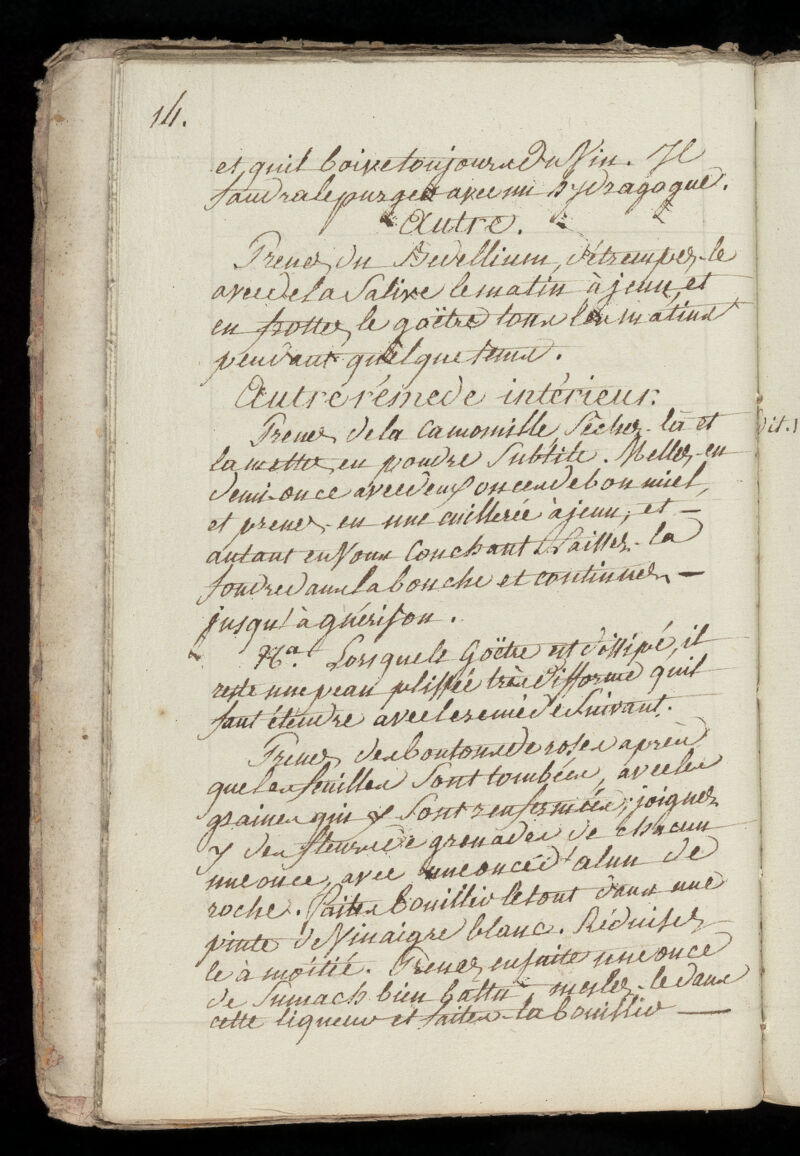 14.
et, qu'il boive toujours du Vin. Il
faudra le purger avec un hydragogue.
Autre.
Prenez du Bedellium, détrempez-le
avec de la Salive le matin à jeun, et
en frottez le goëtre tous les matins
pendant quelque tems.
Autre rémede intérieur.
Prenez de la Camomille Séchez-là et
la mettez en poudre Subtile. Mellez-en
demi-once avec deux onces de bon miel,
et prenez-en une cuillerée à jeun, et -
autant en Vous Couchant. Laissez-la
fondre dans la bouche et continuez -
jusqu'à guérison.
Na. Lorsque le Goëtre est dissipé, il
reste une peau plissée très difforme quil
faut éteindre avec le remède Suivant.
Prenez des boutons de roses après
que les feuilles Sont tombées, avec les
graines qui y Sont renfermées; joignez
y des fleurs de grenades de chacun
une once, avec une once d'alun de
roche. Faites bouillir le tout dans une
pinte de Vinaigre blanc. Réduisez
le à moitié. Prenez ensuite une once
de Sumach bien battu, meslez-le dans
cette liqueur et faites-la bouillir —
dit.